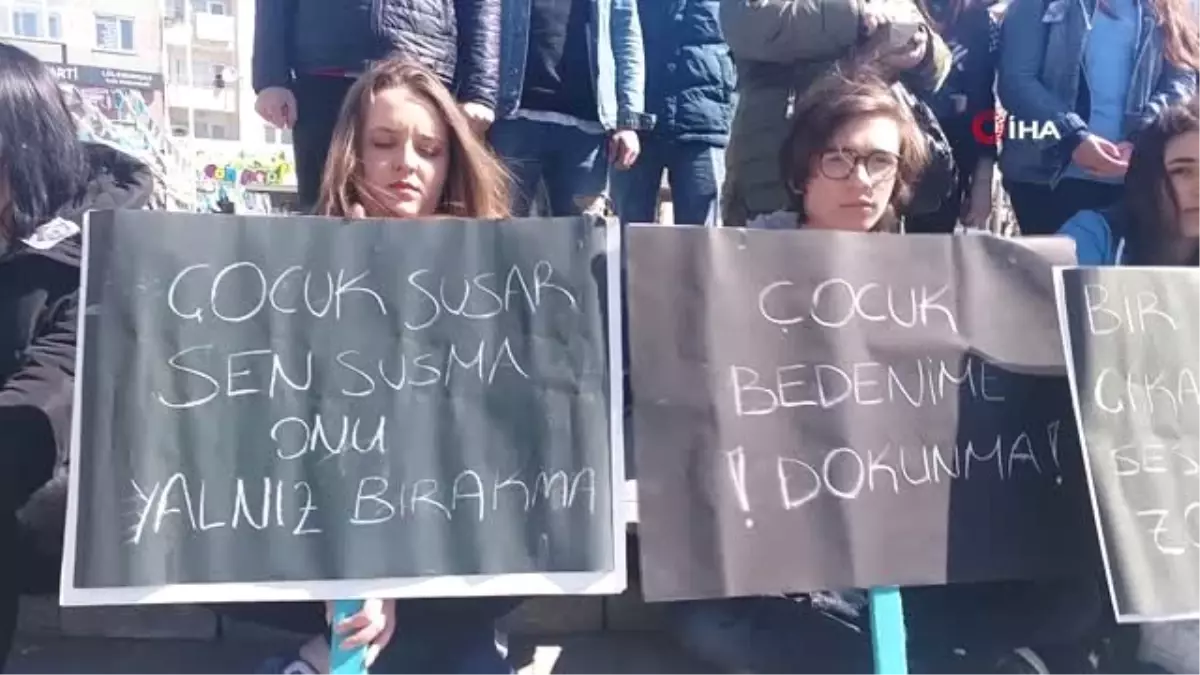 ÇOCUK SUSAR
SEN SUSMA
ONU
YALNIZ BIRAKMA
ÇOCUK
BEDENİME
! DOKUNMA!
BİR
ÇIKA
SES
İHA